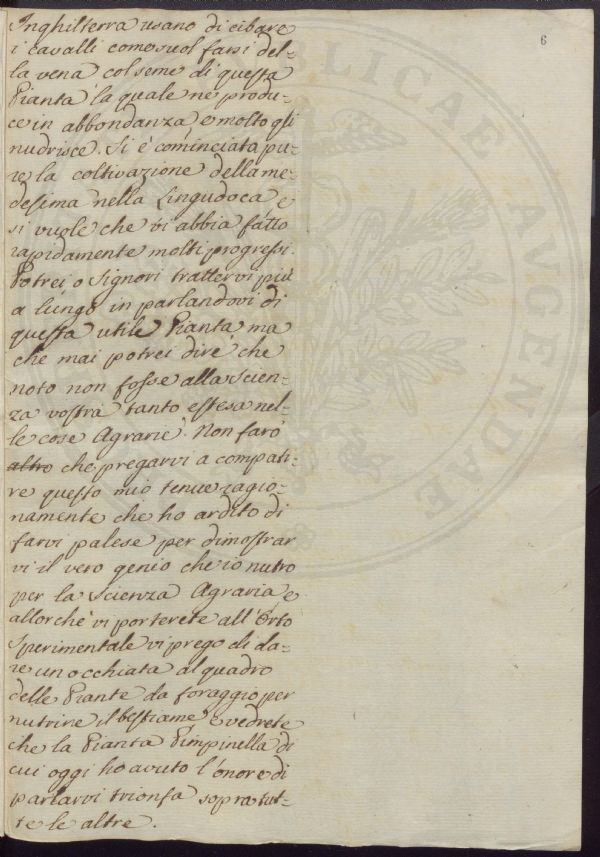 6
Inghilterra usano di cibare
i cavalli come suol farsi del-
la vena col seme di questa
Pianta la quale ne produ-
ce in abbondanza e molto gli
nudrisce. Si è cominciata pu-
re la coltivazione della me-
desima nella Linguadoca e
si vuole che vi abbia fatto
rapidamente molti progressi.
Potrei o Signori trattervi più
a lungo in parlandovi di
questa utile Pianta ma
che mai potrei dire che
noto non fosse alla scien-
za vostra tanto estesa nel-
le cose Agrarie. Non farò
altro che pregarvi a compati-
re questo mio tenue ragio-
namento che ho ardito di
farvi palese per dimostrar
vi il vero genio che io nutro
per la scienza Agraria e
allorchè vi porterete all'Orto
Sperimentale vi prego di da-
re un occhiata al quadro
delle Piante da foraggio per
nutrire il bestiame e vedrete
che la Pianta Pimpinella di
cui oggi ho avuto l'onore di
parlarvi trionfa sopra tut-
te le altre.
PUBLICAE AUGENDAE